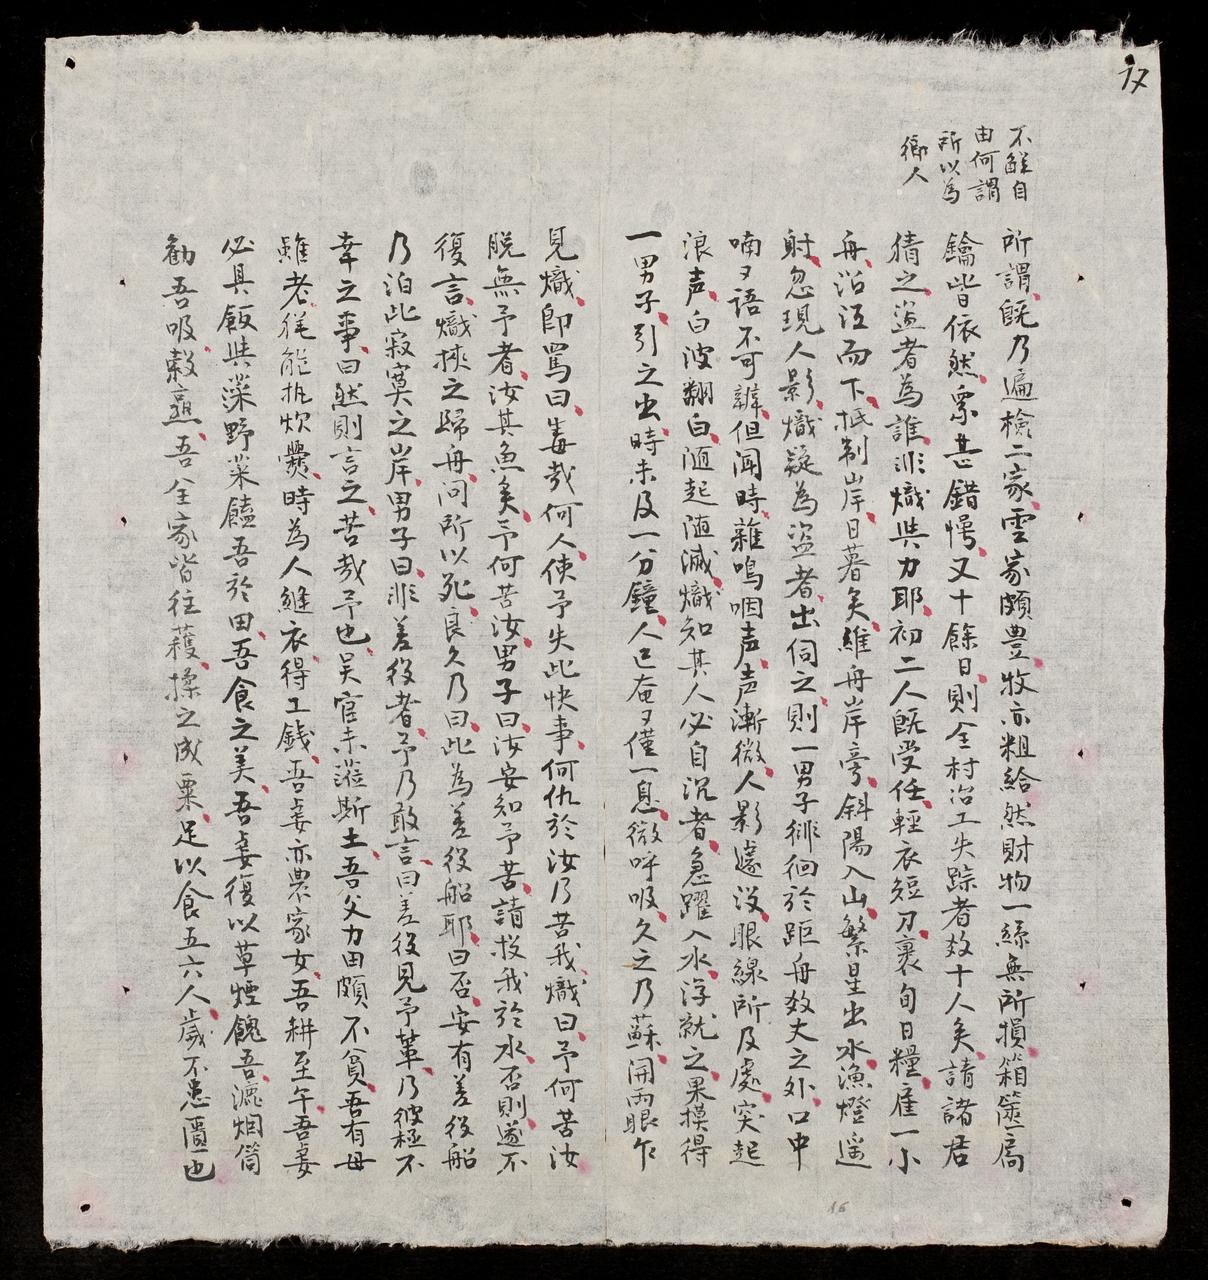 17
不解自
由何謂
所以為
鄉人
所謂既乃遍檢二家雲家頗豊牧亦粗給然財物一絲無所損箱篋扃
鑰皆依然衆甚錯愕又十餘日則全村冶工失踪者数十人矣請諸君
猜之盗者為誰非熾與力耶初二人既受任輕衣短刀裹旬日糧雇一小
舟沿江而下抵制岸日暮矣維舟岸旁斜陽入山繁星出水漁燈遥
射忽現人影熾疑為盗者出伺之則一男子徘徊於距舟数丈之外口中
喃々語不可辭但聞時雜鳴咽声声漸微人影遽没眼線所及處突起
浪声白波翻白随起随滅熾知其人必自沉者急躍入水浮就之果摸得
一男子引之出時未及一分鐘人已奄々僅一息微呼吸久之乃蘇開両眼乍
見熾即罵曰毒哉何人使予失此快事何仇於汝乃苦我熾曰予何苦汝
脱無予者汝其魚矣予何苦汝男子曰汝安知予苦請投我於水否則遂不
復言熾挾之歸舟問所以死良久乃曰此為差役船耶曰否安有差役船
乃泊此寂寞之岸男子曰非差役者予乃敢言曰差役見予輩乃彼極不
幸之事曰然則言之苦哉予也吴官未蒞斯土吾父力田頗不貧吾有母
雖老猶能執炊爨時為人縫衣得工錢吾妻亦農家女吾耕至午吾妻
必具飯與藻野菜饁吾於田吾食之美吾妻復以草煙餽吾漉烟筒
勸吾吸穀熹吾全家皆往穫揉之成粟足以食五六人歲不患匱也
16